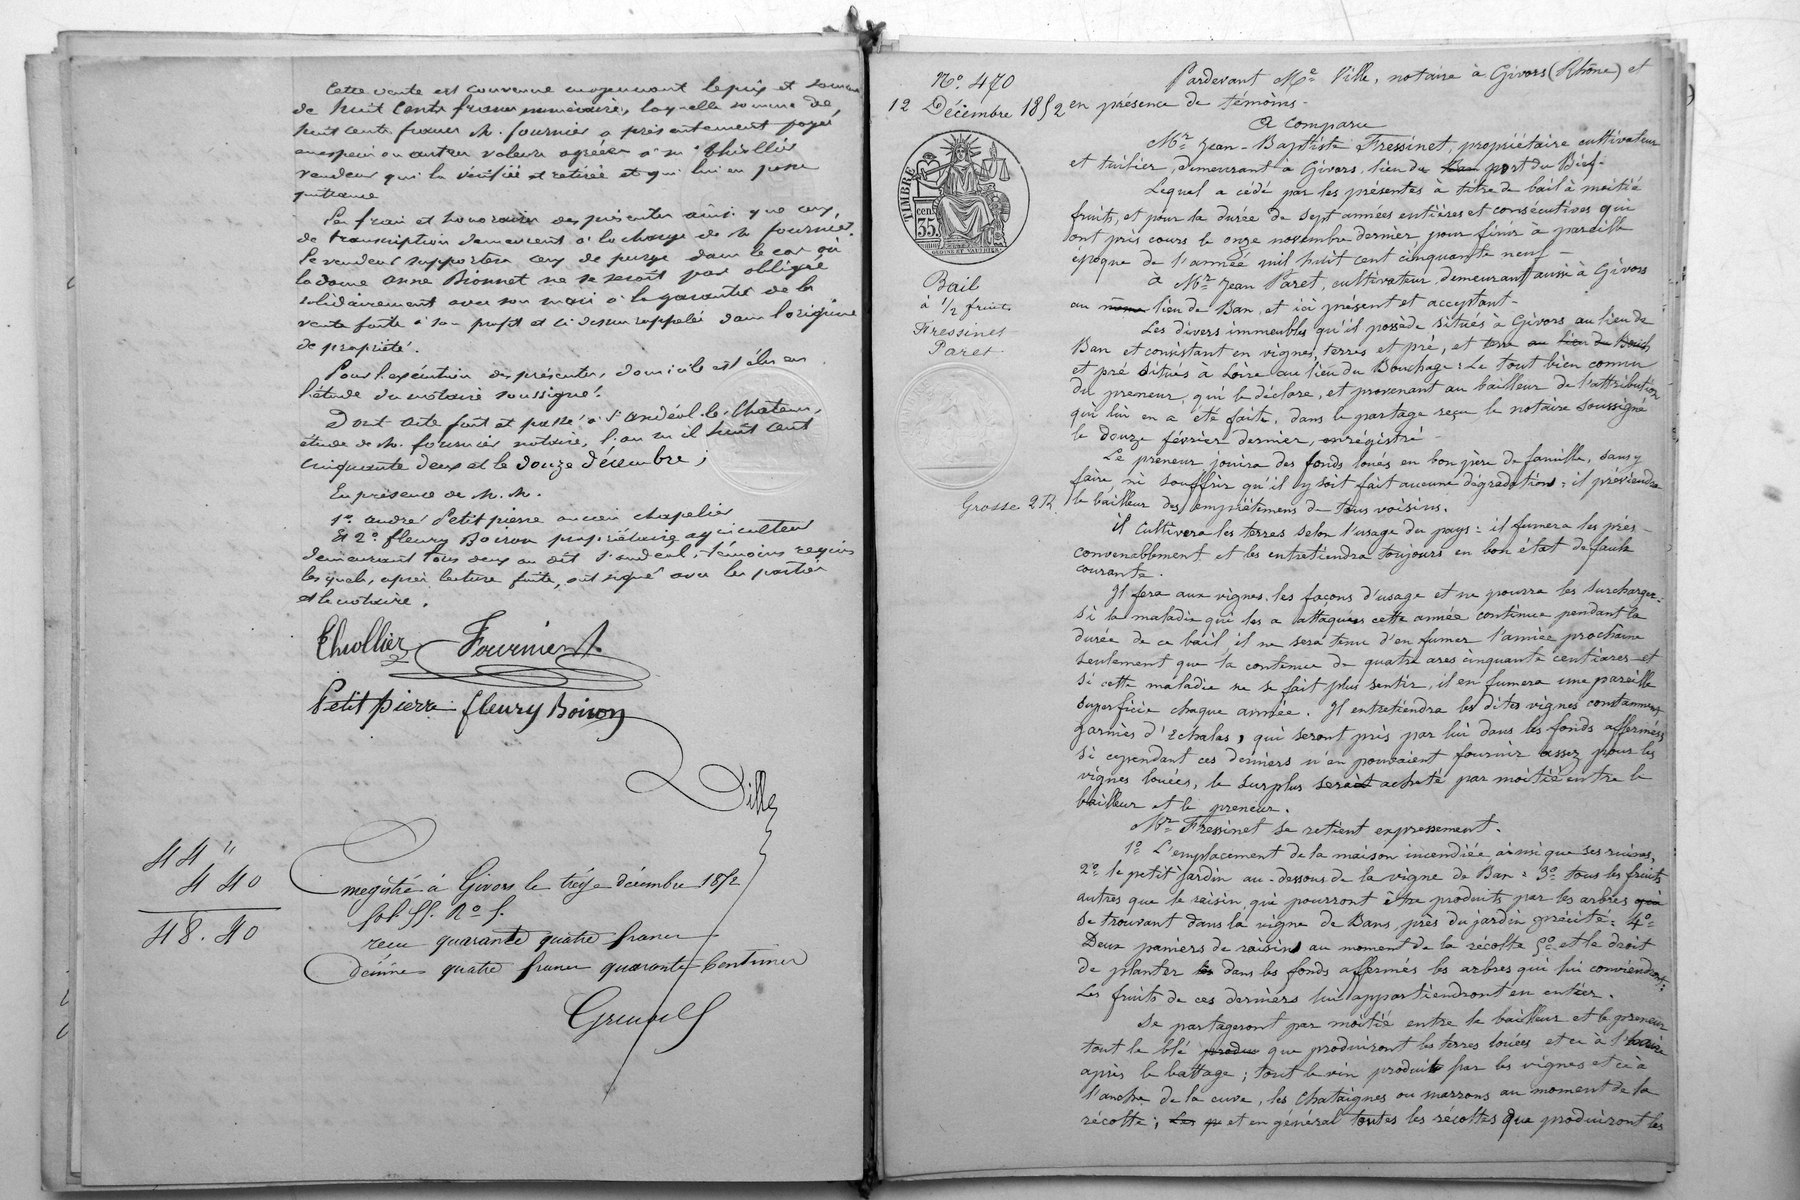 Cette vente est convenue moyennant le prix et somme
de huit Cents francs numéraire, laquelle somme de
huit cents francs M. fournier a présentement payée
en espèces ou autres valeurs agréées à sr Thiollier
vendeur qui l'a vérifiée et retirée et qui lui en passe
quittance
Les frais et honoraires des présentes ainsi que ceux
de transcription demeurent à la charge de M fournier.
Le vendeur supportera ceux de purge dans le cas où
la dame anne Bionnet ne se serait pas obligée
solidairement avec son mari à la garantie de la
vente faite à son profit et ci dessus rappelée dans l'origine
de propriété.
Pour l'exécution des présentes, domicile est élu en
l'étude du notaire soussigné.
Dont acte fait et passé à St andéol-le-Chateau,
étude de M. fournier notaire, l'an mil huit cent
cinquante deux et le douze décembre ;
En présence de M. M.
1º andré Petit pierre ancien chapelier
Et 2º fleury Boiron propriétaire agriculteur
demeurant tous deux au dit St andéol, témoins requis
lesquels, après lecture faite, ont signé avec les parties
et le notaire.
Thiollier Fournier
Petit pierre fleury Boiron
Ville
44 "
4 40
48. 40
Enregistré à Givors le treize décembre 1852
fol. 55. Nº 5.
reçu quarante quatre francs
décime quatre francs quarante Centimes
Nº. 470
12 Décembre 1852
TIMBRE
35 cen.
Bail
à 1/2 fruits
Fressinet
Paret
Grosse 2 R.
Pardevant Me Ville, notaire à Givors (Rhône) et
en présence de témoins-
A comparu
Mr Jean-Baptiste Fressinet, propriétaire cultivateur
et tuilier, demeurant à Givors, lieu du Ban port du Bief-
Lequel a cédé par les présentes à titre de bail à moitié
fruits, et pour la durée de sept années entières et consécutives qui
ont pris cours le onze novembre dernier pour finir à pareille
époque de l'année mil huit cent cinquante neuf -
à Mr Jean Paret, cultivateur demeurant aussi à Givors
au même lieu de Ban, et ici présent et acceptant-
Les divers immeubles qu'il possède situés à Givors au lieu de
Ban et consistant en vignes, terres et pré, et terre au lieu du Bouch
et pré situés à Loire au lieu du Bouchage : Le tout bien connu
du preneur, qui le déclare, et provenant au bailleur de l'attribution
qui lui en a été faite, dans le partage reçu le notaire soussigné
le douze février dernier, enrégistré -
Le preneur jouira des fonds loués en bon père de famille, sans y
faire ni souffrir qu'il y soit fait aucune dégradation : il préviendra
le bailleur des empiétements de tous voisins.
il Cultivera les terres selon l'usage du pays : il fumera les prés
convenablement et les entretiendra toujours en bon état de faulx
courante.
Il fera aux vignes, les façons d'usage et ne pourra les surcharger.
Si la maladie qui les a attaquées cette année continue pendant la
durée de ce bail, il ne sera tenu d'en fumer l'année prochaine
seulement que la contenue de quatre ares cinquante centiares et
si cette maladie ne se fait plus sentir, il en fumera une pareille
superficie chaque année. Il entretiendra les dites vignes constamment
garnies d'Echalas, qui seront pris par lui dans les fonds affermés
si cependant ces derniers n'en pouvaient fournir assez pour les
vignes louées, le surplus serait acheté par moitié entre le
bailleur et le preneur.
Mr Fressinet se retient expressement.
1º L'emplacement de la maison incendiée, ainsi que ses ruines,
2º le petit jardin au-dessous de la vigne de Ban : 3º tous les fruits
autres que le raisin, qui pourront être produits par les arbres qui
se trouvant dans la vigne de Bans, près du jardin précité : 4º
Deux paniers de raisins au moment de la récolte 5º et le droit
de planter les dans les fonds affermés les arbres qui lui conviendront :
Les fruits de ces derniers lui appartiendront en entier.
Se partageront par moitié entre le bailleur et le preneur
tout le blé produ que produiront les terres louées et ce à l'haire
après le battage ; tout le vin produit par les vignes et ce à
l'anche de la cuve, les chataignes ou marrons au moment de la
récolte ; Les p et en général toutes les récoltes que produiront les